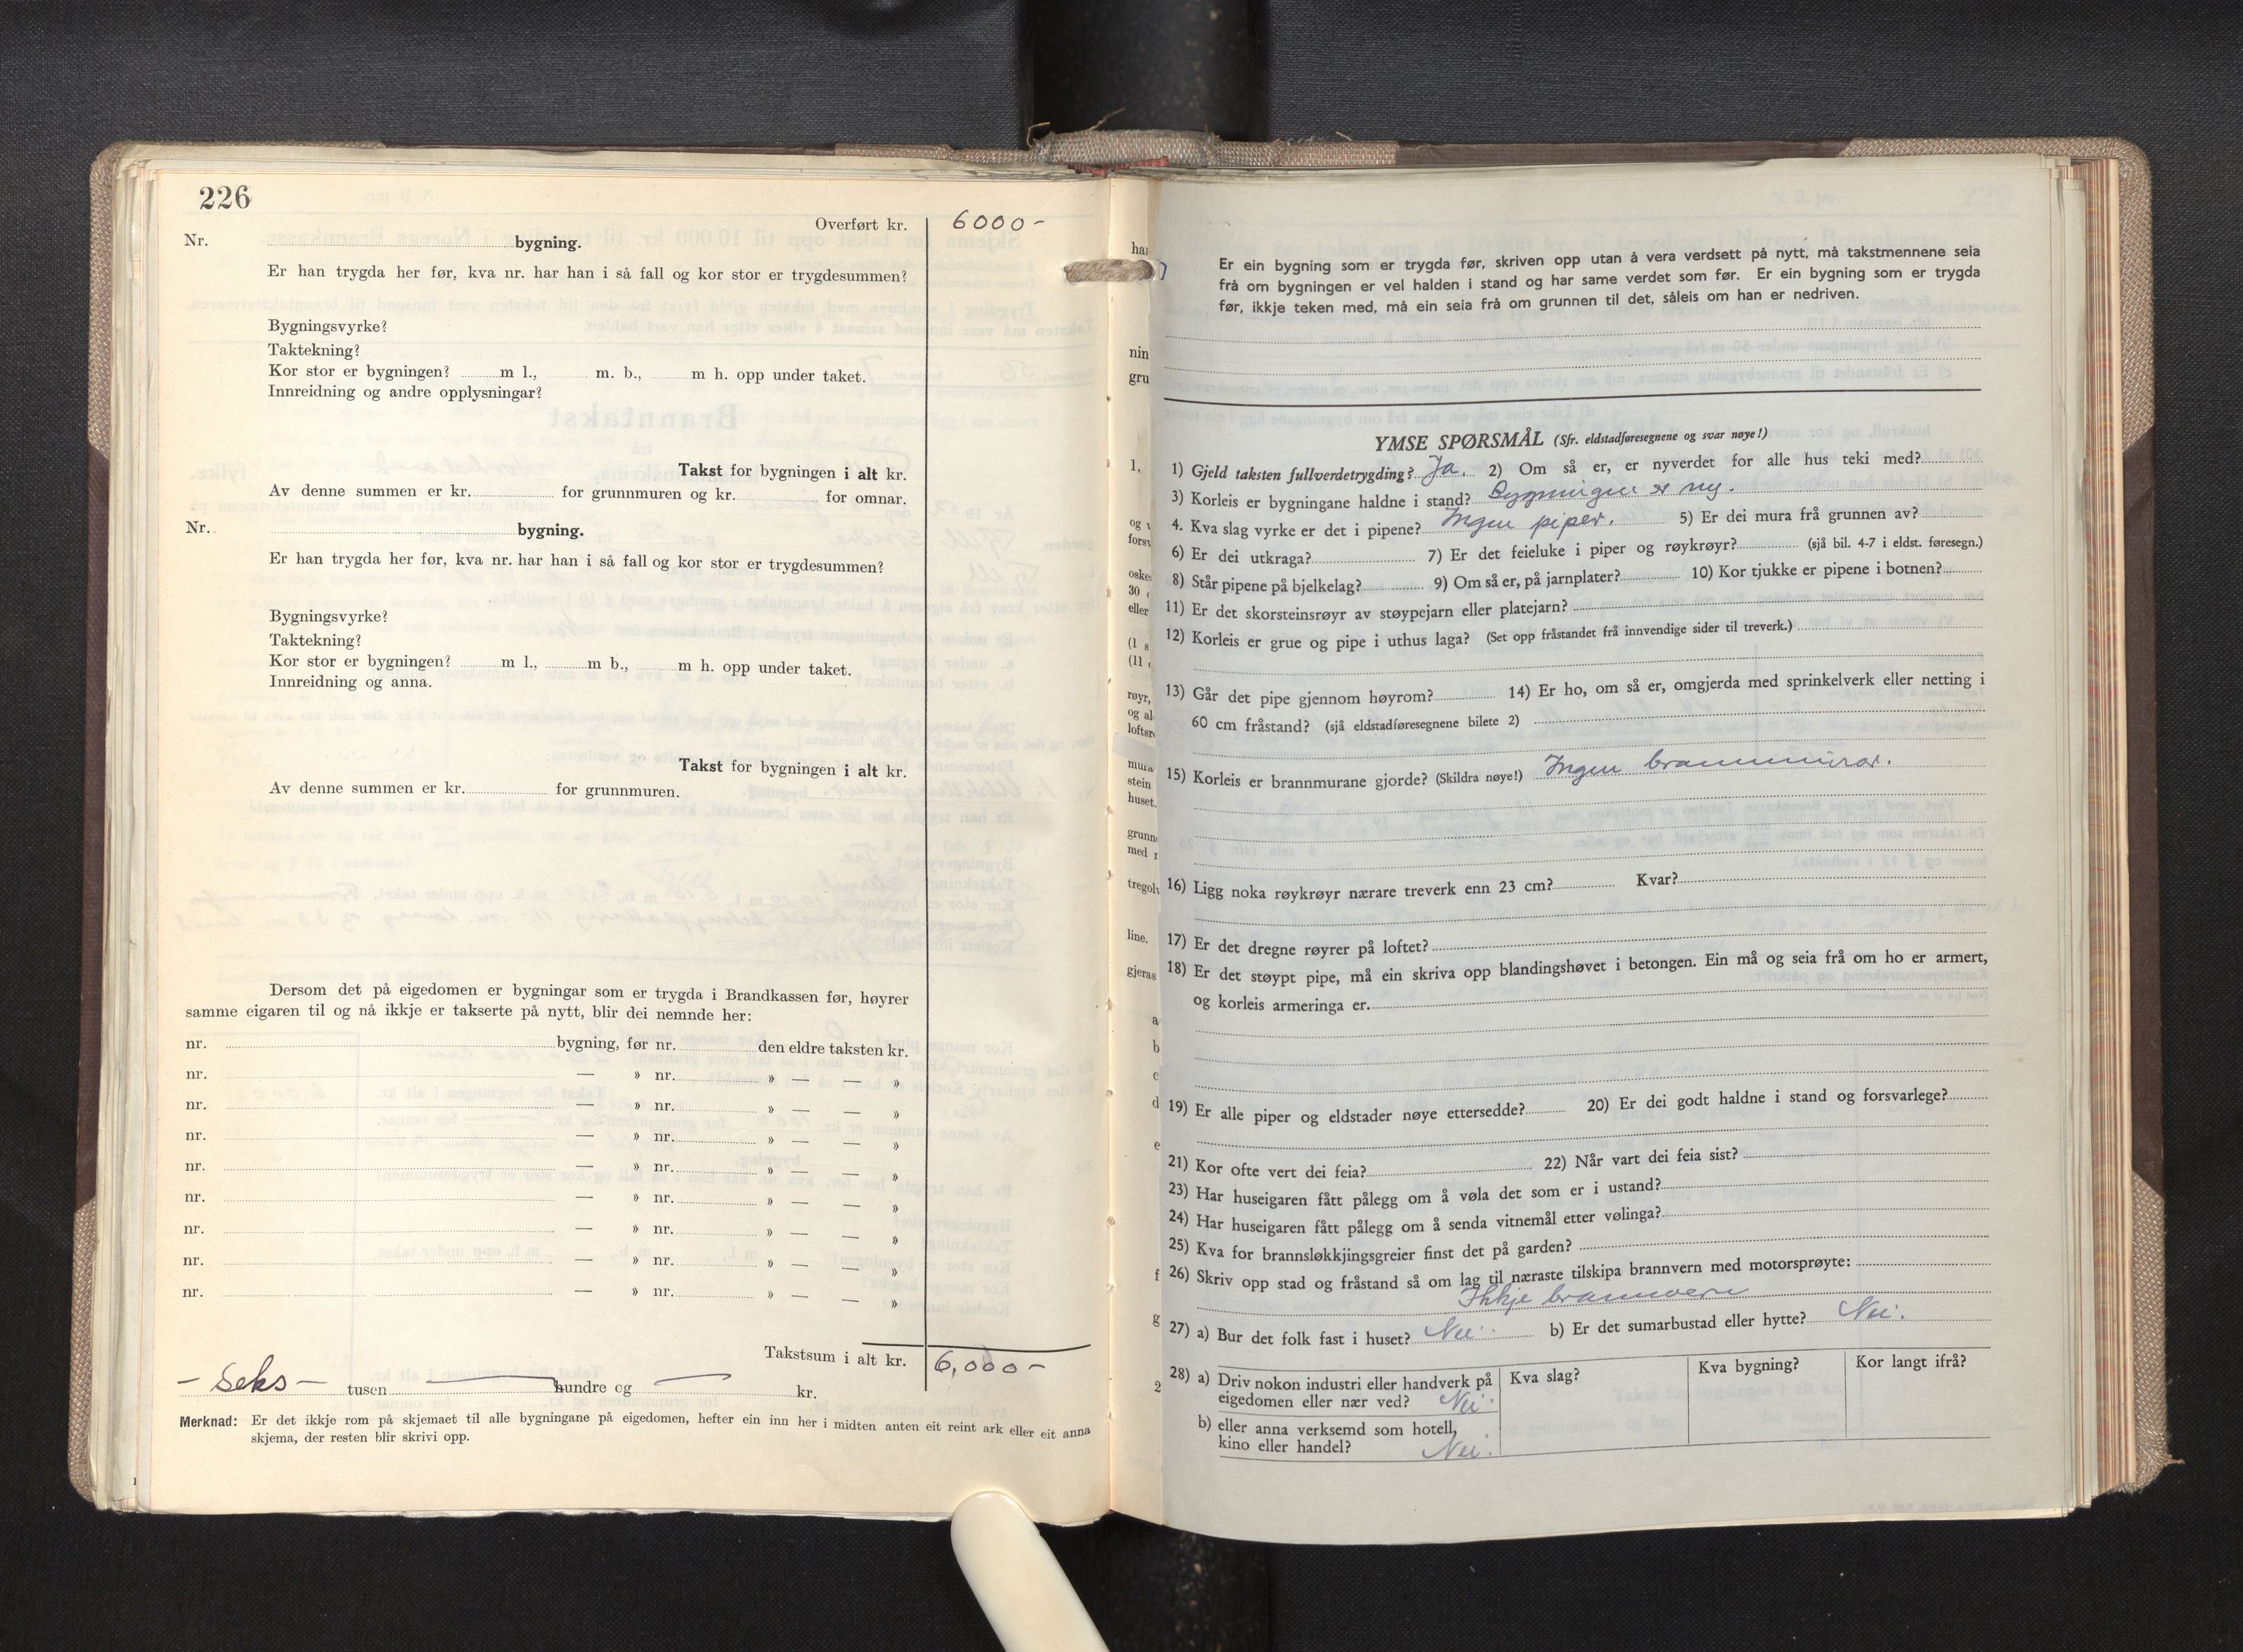 226
Overført kr. 6000-
Nr. bygning.
Er han trygda her før, kva nr. har han i så fall og kor stor er trygdesummen?
Bygningsvyrke?
Taktekning?
Kor stor er bygningen? m l., m. b., m h. opp under taket.
Innreidning og andre opplysningar?
Takst for bygningen i alt kr.
Av denne summen er kr. for grunnmuren og kr. for omnar.
Nr. bygning.
Er han trygda her før, kva nr. har han i så fall og kor stor er trygdesummen?
Bygningsvyrke?
Taktekning?
Kor stor er bygningen? m l., m b., m h. opp under taket.
Innreidning og anna.
Takst for bygningen i alt kr.
Av denne summen er kr. for grunnmuren.
Dersom det på eigedomen er bygningar som er trygda i Brandkassen før, høyrer
samme eigaren til og nå ikkje er takserte på nytt, blir dei nemnde her:
nr. bygning, før nr. den eldre taksten kr.
nr. — » nr. » — — »
nr. — » nr. » — — »
nr. — » nr. » — — »
nr. — » nr. » — — »
nr. — » nr. » — — »
nr. — » nr. » — — »
nr. — » nr. » — — »
nr. — » nr. » — — »
Takstsum i alt kr. 6,000-
- seks - tusen — hundre og — kr.
Merknad: Er det ikkje rom på skjemaet til alle bygningane på eigedomen, hefter ein inn her i midten anten eit reint ark eller eit anna
skjema, der resten blir skrivi opp.
Er ein bygning som er trygda før, skriven opp utan å vera verdsett på nytt, må takstmennene seia
frå om bygningen er vel halden i stand og har same verdet som før. Er ein bygning som er trygda
før, ikkje teken med, må ein seia frå om grunnen til det, såleis om han er nedriven.
YMSE SPØRSMÅL (Sfr. eldstadføresegnene og svar nøye!)
1) Gjeld taksten fullverdetrygding? Ja. 2) Om så er, er nyverdet for alle hus teki med?
3) Korleis er bygningane haldne i stand? Bygningen er ny.
4. Kva slag vyrke er det i pipene? Ingen piper. 5) Er dei mura frå grunnen av?
6) Er dei utkraga? 7) Er det feieluke i piper og røykrøyr? (sjå bil. 4-7 i eldst. føresegn.)
8) Står pipene på bjelkelag? 9) Om så er, på jarnplater? 10) Kor tjukke er pipene i botnen?
11) Er det skorsteinsrøyr av støypejarn eller platejarn?
12) Korleis er grue og pipe i uthus laga? (Set opp fråstandet frå innvendige sider til treverk.)
13) Går det pipe gjennom høyrom? 14) Er ho, om så er, omgjerda med sprinkelverk eller netting i
60 cm fråstand? (sjå eldstadføresegnene bilete 2)
15) Korleis er brannmurane gjorde? (Skildra nøye!) Ingen brannmurar.
16) Ligg noka røykrøyr nærare treverk enn 23 cm? Kvar?
17) Er det dregne røyrer på loftet?
18) Er det støypt pipe, må ein skriva opp blandingshøvet i betongen. Ein må og seia frå om ho er armert,
og korleis armeringa er.
19) Er alle piper og eldstader nøye ettersedde? 20) Er dei godt haldne i stand og forsvarlege?
21) Kor ofte vert dei feia? 22) Når vart dei feia sist?
23) Har huseigaren fått pålegg om å vøla det som er i ustand?
24) Har huseigaren fått pålegg om å senda vitnemål etter vølinga?
25) Kva for brannsløkkjingsgreier finst det på garden?
26) Skriv opp stad og fråstand så om lag til næraste tilskipa brannvern med motorsprøyte:
Ikkje brannvern
27) a) Bur det folk fast i huset? Nei. b) Er det sumarbustad eller hytte? Nei.
28) a) Driv nokon industri eller handverk på
eigedomen eller nær ved? Nei.
Kva slag? Kva bygning? Kor langt ifrå?
b) eller anna verksemd som hotell,
kino eller handel? Nei.